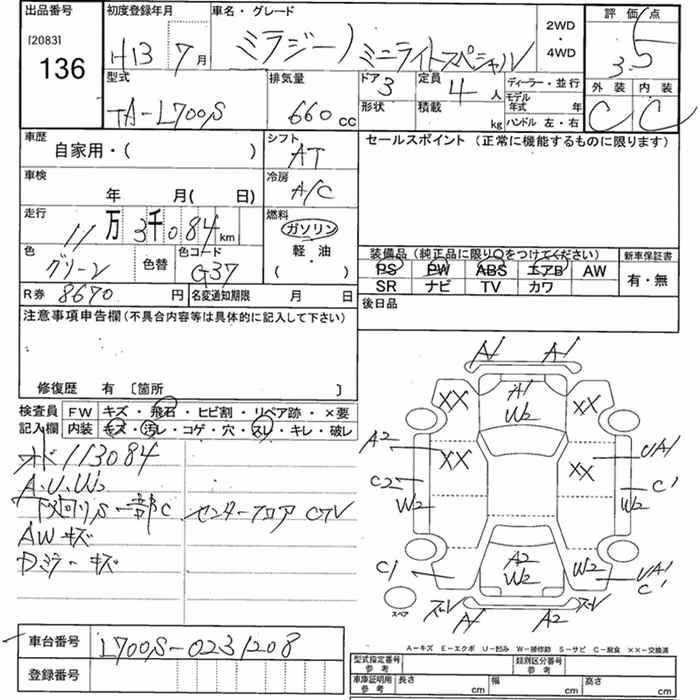 出品番号
[20831]
136
初度登録年月
H13 7月
車名・グレード
ミラジーノ ミニライトスペシャル
2WD
・
4WD
評価点
3.5
外装 内装
C C
型式
TA-L700S
排気量
660 cc
ドア 3
定員 4 人
形状
積載 kg
ディーラー・並行
モデル年式 年
ハンドル 左・右
車歴
自家用・( )
シフト
AT
車検
年 月( 日)
冷房
A/C
走行
11万3千084 km
燃料
ガソリン
軽・油
・
( )
色
グリーン
色替
色コード
G37
R券 8670 円
名変通知期限 月 日
セールスポイント (正常に機能するものに限ります)
装備品(純正品に限り○をつけてください)
PS PW ABS エアB AW
SR ナビ TV カワ
新車保証書
有・無
後日品
注意事項申告欄(不具合内容等は具体的に記入して下さい)
修復歴 有 [箇所 ]
検査員
記入欄
FW キズ・飛石・ヒビ割・リペア跡・×要
内装 キズ・汚レ・コゲ・穴・スレ・キレ・破レ
メ 113084
A.U.W2
下廻りS 一部C センターフロア CアV
AW キズ
Dミラーキズ
A1 A1
A1
W2
XX XX
A2
XX XX
UA1
C2
W2
C'
W2
A2
W2
W2
C1
UA1
C'
スペア
A1 A2
A-キズ E-エクボ U-凹み W-補修跡 S-サビ C-腐食 ××-交換済
車台番号 L700S-0231208
登録番号
型式指定番号
参考
類別区分番号
参考
車庫証明用
参考
長さ cm
幅 cm
高さ cm